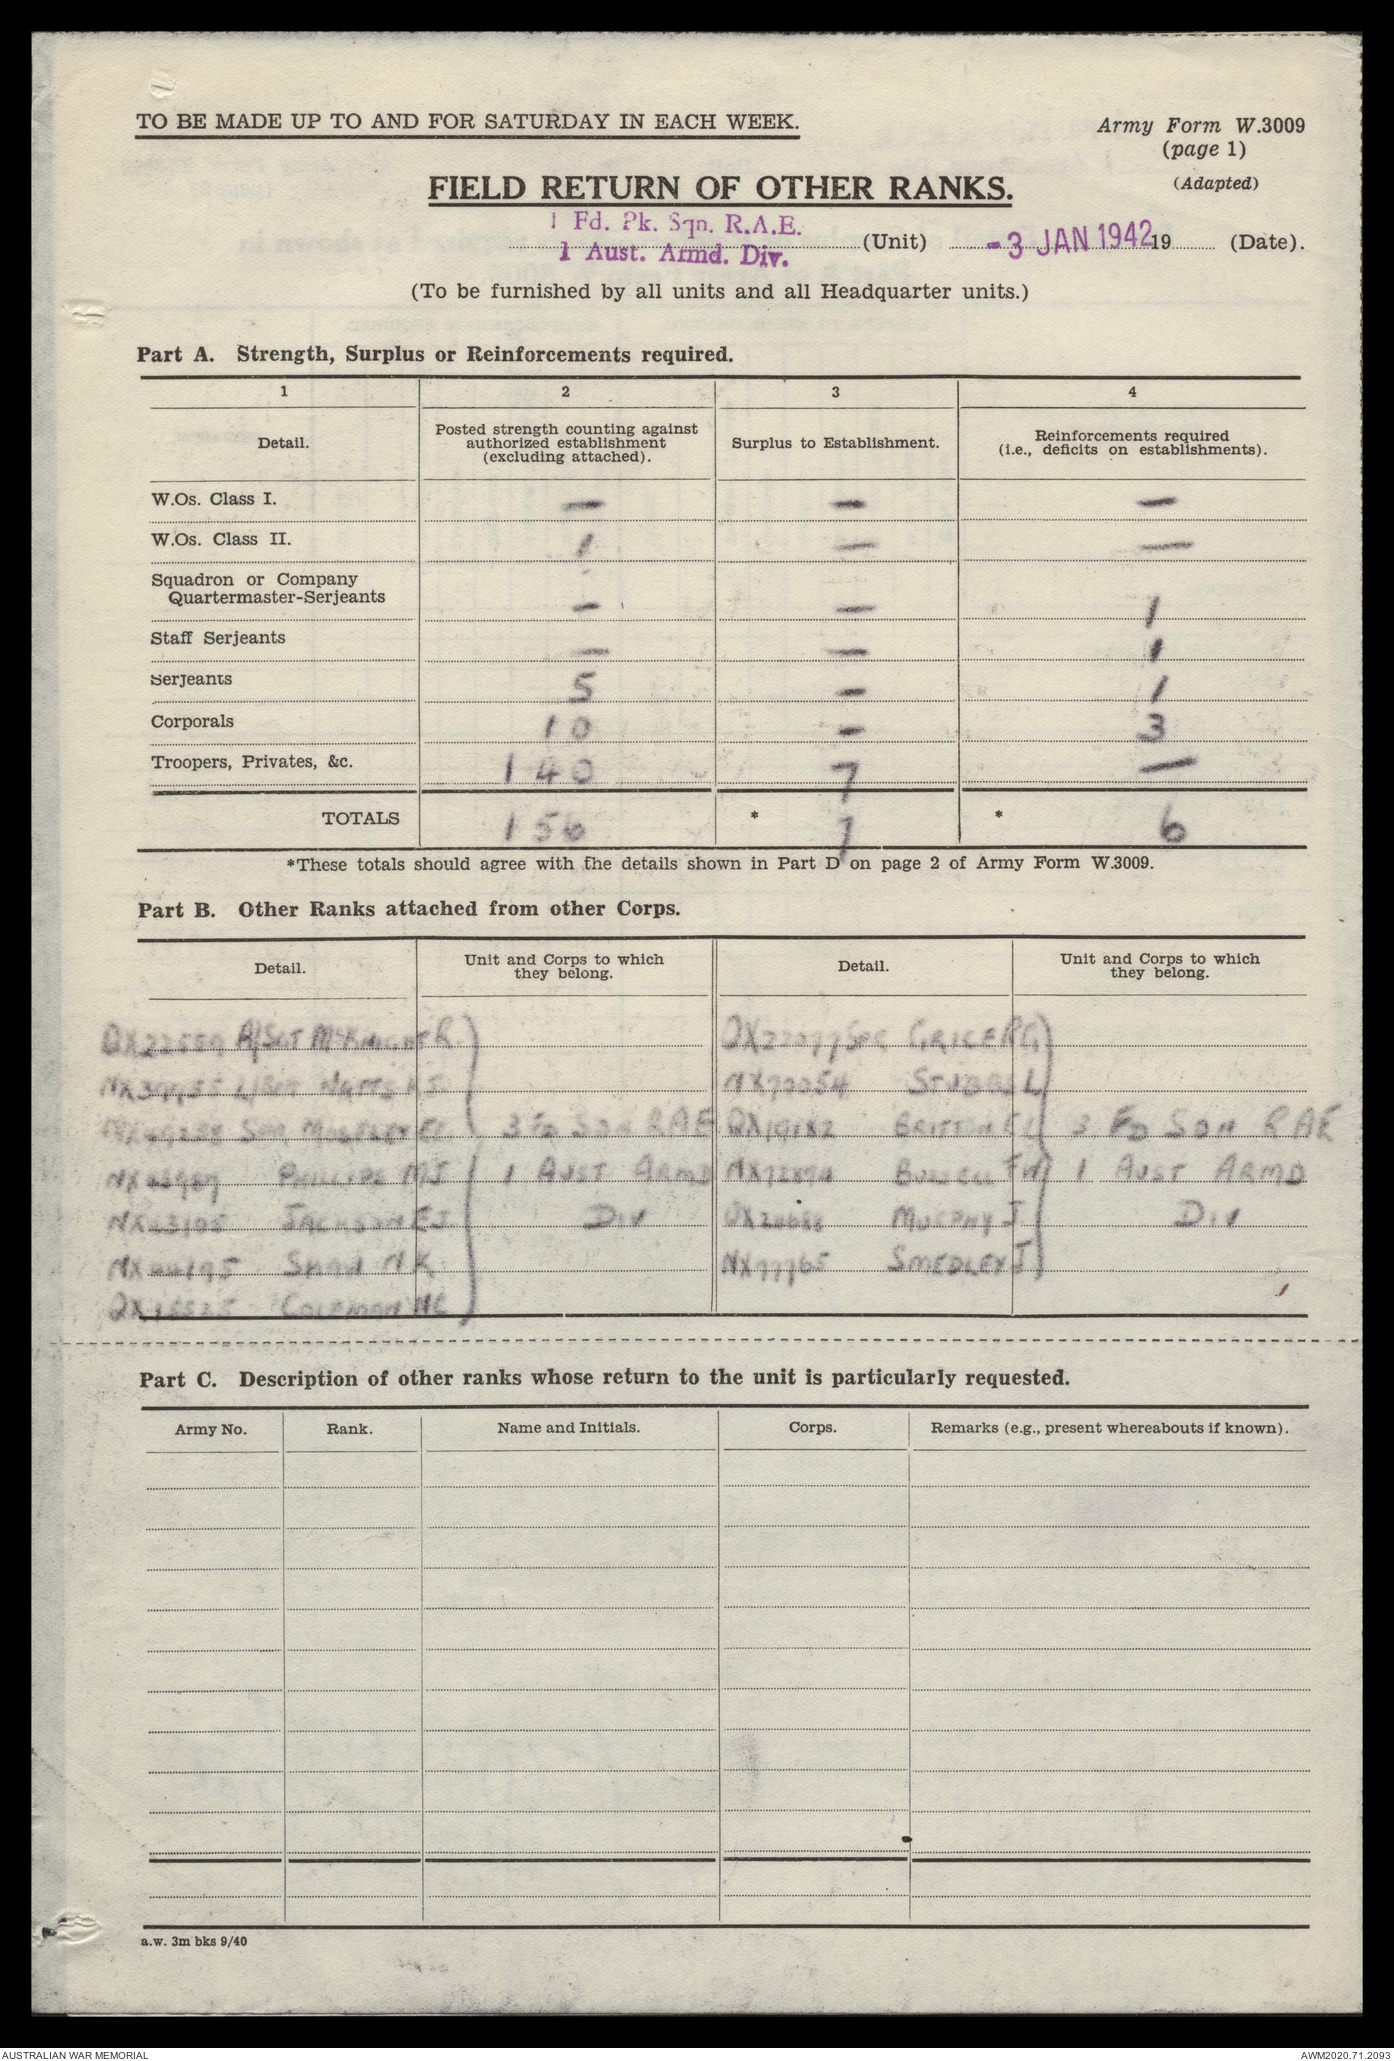 TO BE MADE UP TO AND FOR SATURDAY IN EACH WEEK.
Army Form W.3009
(page 1)
(Adapted)
FIELD RETURN OF OTHER RANKS.
1 Fd. Pk. Sqn. R.A.E.
1 Aust. Armd. Div. (Unit) -3 JAN 1942 19 (Date).
(To be furnished by all units and all Headquarter units.)
Part A. Strength, Surplus or Reinforcements required.
1 2 3 4
Detail. Posted strength counting against authorized establishment (excluding attached). Surplus to Establishment. Reinforcements required (i.e., deficits on establishments).
W.Os. Class I. — — —
W.Os. Class II. 1 — —
Squadron or Company
Quartermaster-Serjeants — — 1
Staff Serjeants — — 1
Serjeants 5 — 1
Corporals 10 — 3
Troopers, Privates, &c. 140 7 —
TOTALS 156 * 7 * 6
*These totals should agree with the details shown in Part D on page 2 of Army Form W.3009.
Part B. Other Ranks attached from other Corps.
Detail. Unit and Corps to which they belong. Detail. Unit and Corps to which they belong.
A/Sgt McKnight R GRICE RG
L/Sgt NX72054 STUBBS L
3 FD SQN RAE QX19182 BRITTON 3 FD SQN RAE
PHILLIPS MJ 1 AUST ARMD 1 AUST ARMD
JACKSON EJ DIV MURPHY J DIV
SHAW NK NX77765 SMEDLEY J
COLEMAN NC
Part C. Description of other ranks whose return to the unit is particularly requested.
Army No. Rank. Name and Initials. Corps. Remarks (e.g., present whereabouts if known).
a.w. 3m bks 9/40
AUSTRALIAN WAR MEMORIAL
AWM2020.71.2093